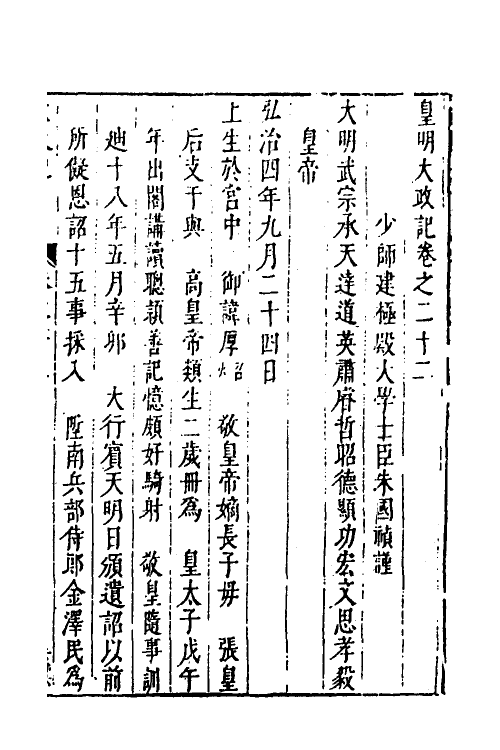 皇明大政記卷之二十二
少師建極殿大學士臣朱國禎謹
大明武宗承天達道英肅睿哲昭德顯功宏文思孝毅
皇帝
弘治四年九月二十四日
上生於宮中 御諱厚炤 敬皇帝嫡長子毋 張皇
后支干與 高皇帝類生二歲冊爲 皇太子戊午
年出閣講讀聰穎善記憶頗好騎射 敬皇隨事訓
廸十八年五月辛卯 大行賓天明日頒遺詔以前
所儗恩詔十五事採入 陞南兵部侍郎金澤民爲